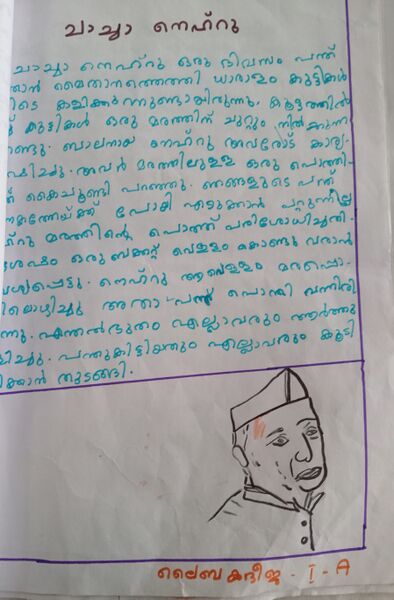 ചാച്ചാ നെഹ്റു
ചാച്ചാ നെഹ്റു ഒരു ദിവസം പന്ത്
മൈതാനത്തെത്തി ധാരാളം കുട്ടികൾ
കളിക്കുന്നുണ്ടായിരുന്നു. കൂട്ടത്തിൽ
കുട്ടികൾ ഒരു മരത്തിന് ചുറ്റും നിൽക്കുന്ന
ബാലനായ നെഹ്റു അവരോട് കാര്യ-
അവർ മരത്തിലുള്ള ഒരു പൊത്തി-
കൈചൂണ്ടി പറഞ്ഞു. ഞങ്ങളുടെ പന്ത്
പോയി എടുക്കാൻ പറ്റുന്നില്ല
മരത്തിന്റെ പൊത്ത് പരിശോധിച്ചതി-
ഒരു ബക്കറ്റ് വെള്ളം കൊണ്ടു വരാൻ
നെഹ്റു ആവെള്ളം മരപ്പൊ-
അതാ പന്ത് പൊന്തി വന്നിരി
എന്തൽഭുതം എല്ലാവരും ആർത്തു
പന്തുകിട്ടിയതും എല്ലാവരും കൂടി
തുടങ്ങി.
ലൈബ കദീജ - I - A